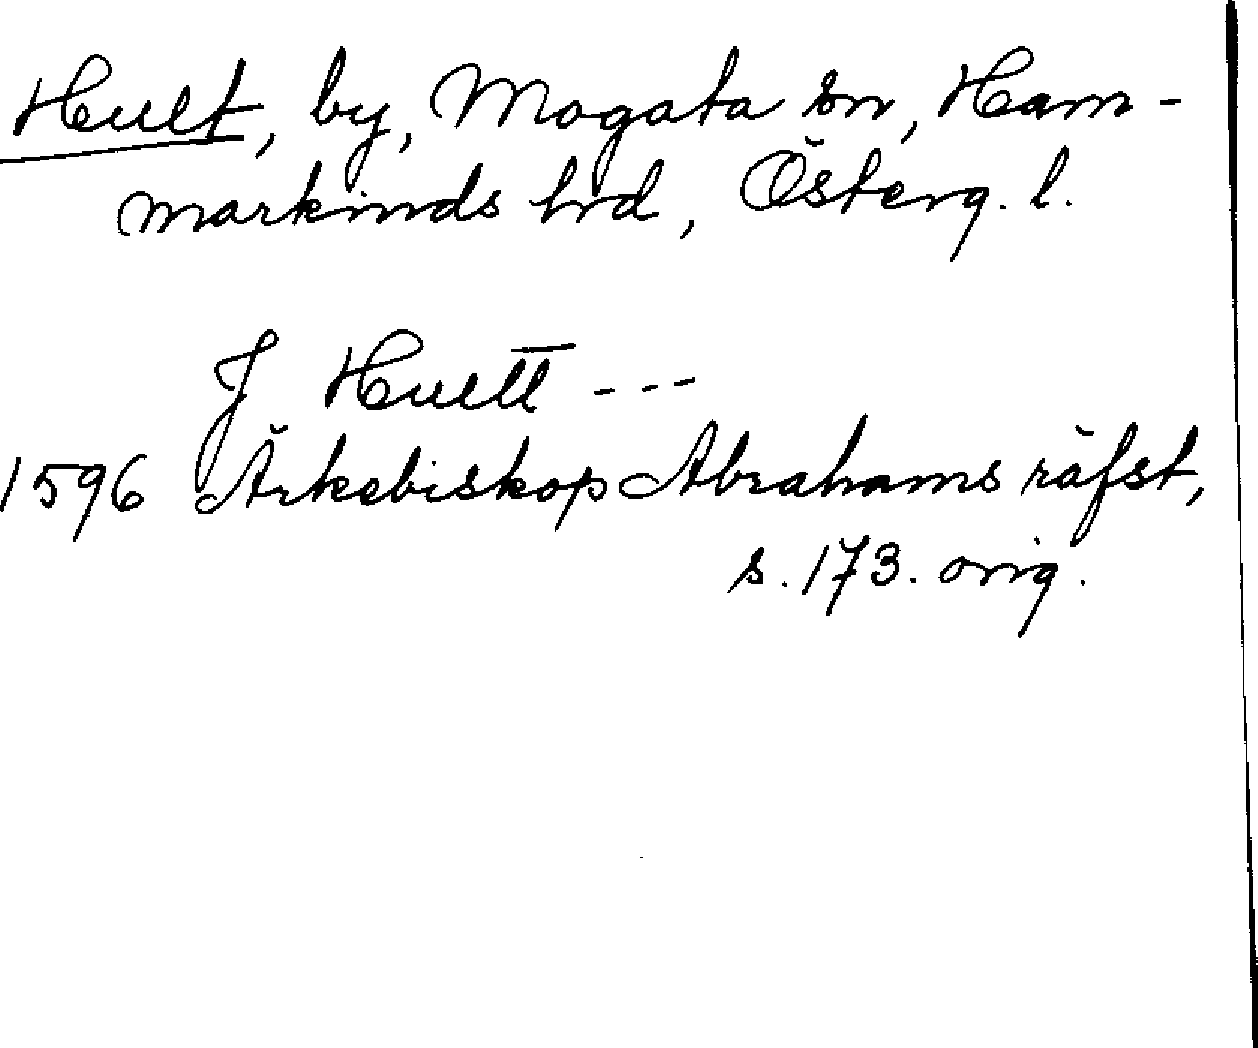 Hult, by, Mogata sn, Ham-
markinds hrd, Österg. l.
J Hultt ---
1596 Ärkebiskop Abrahams räfst,
s. 173. orig.